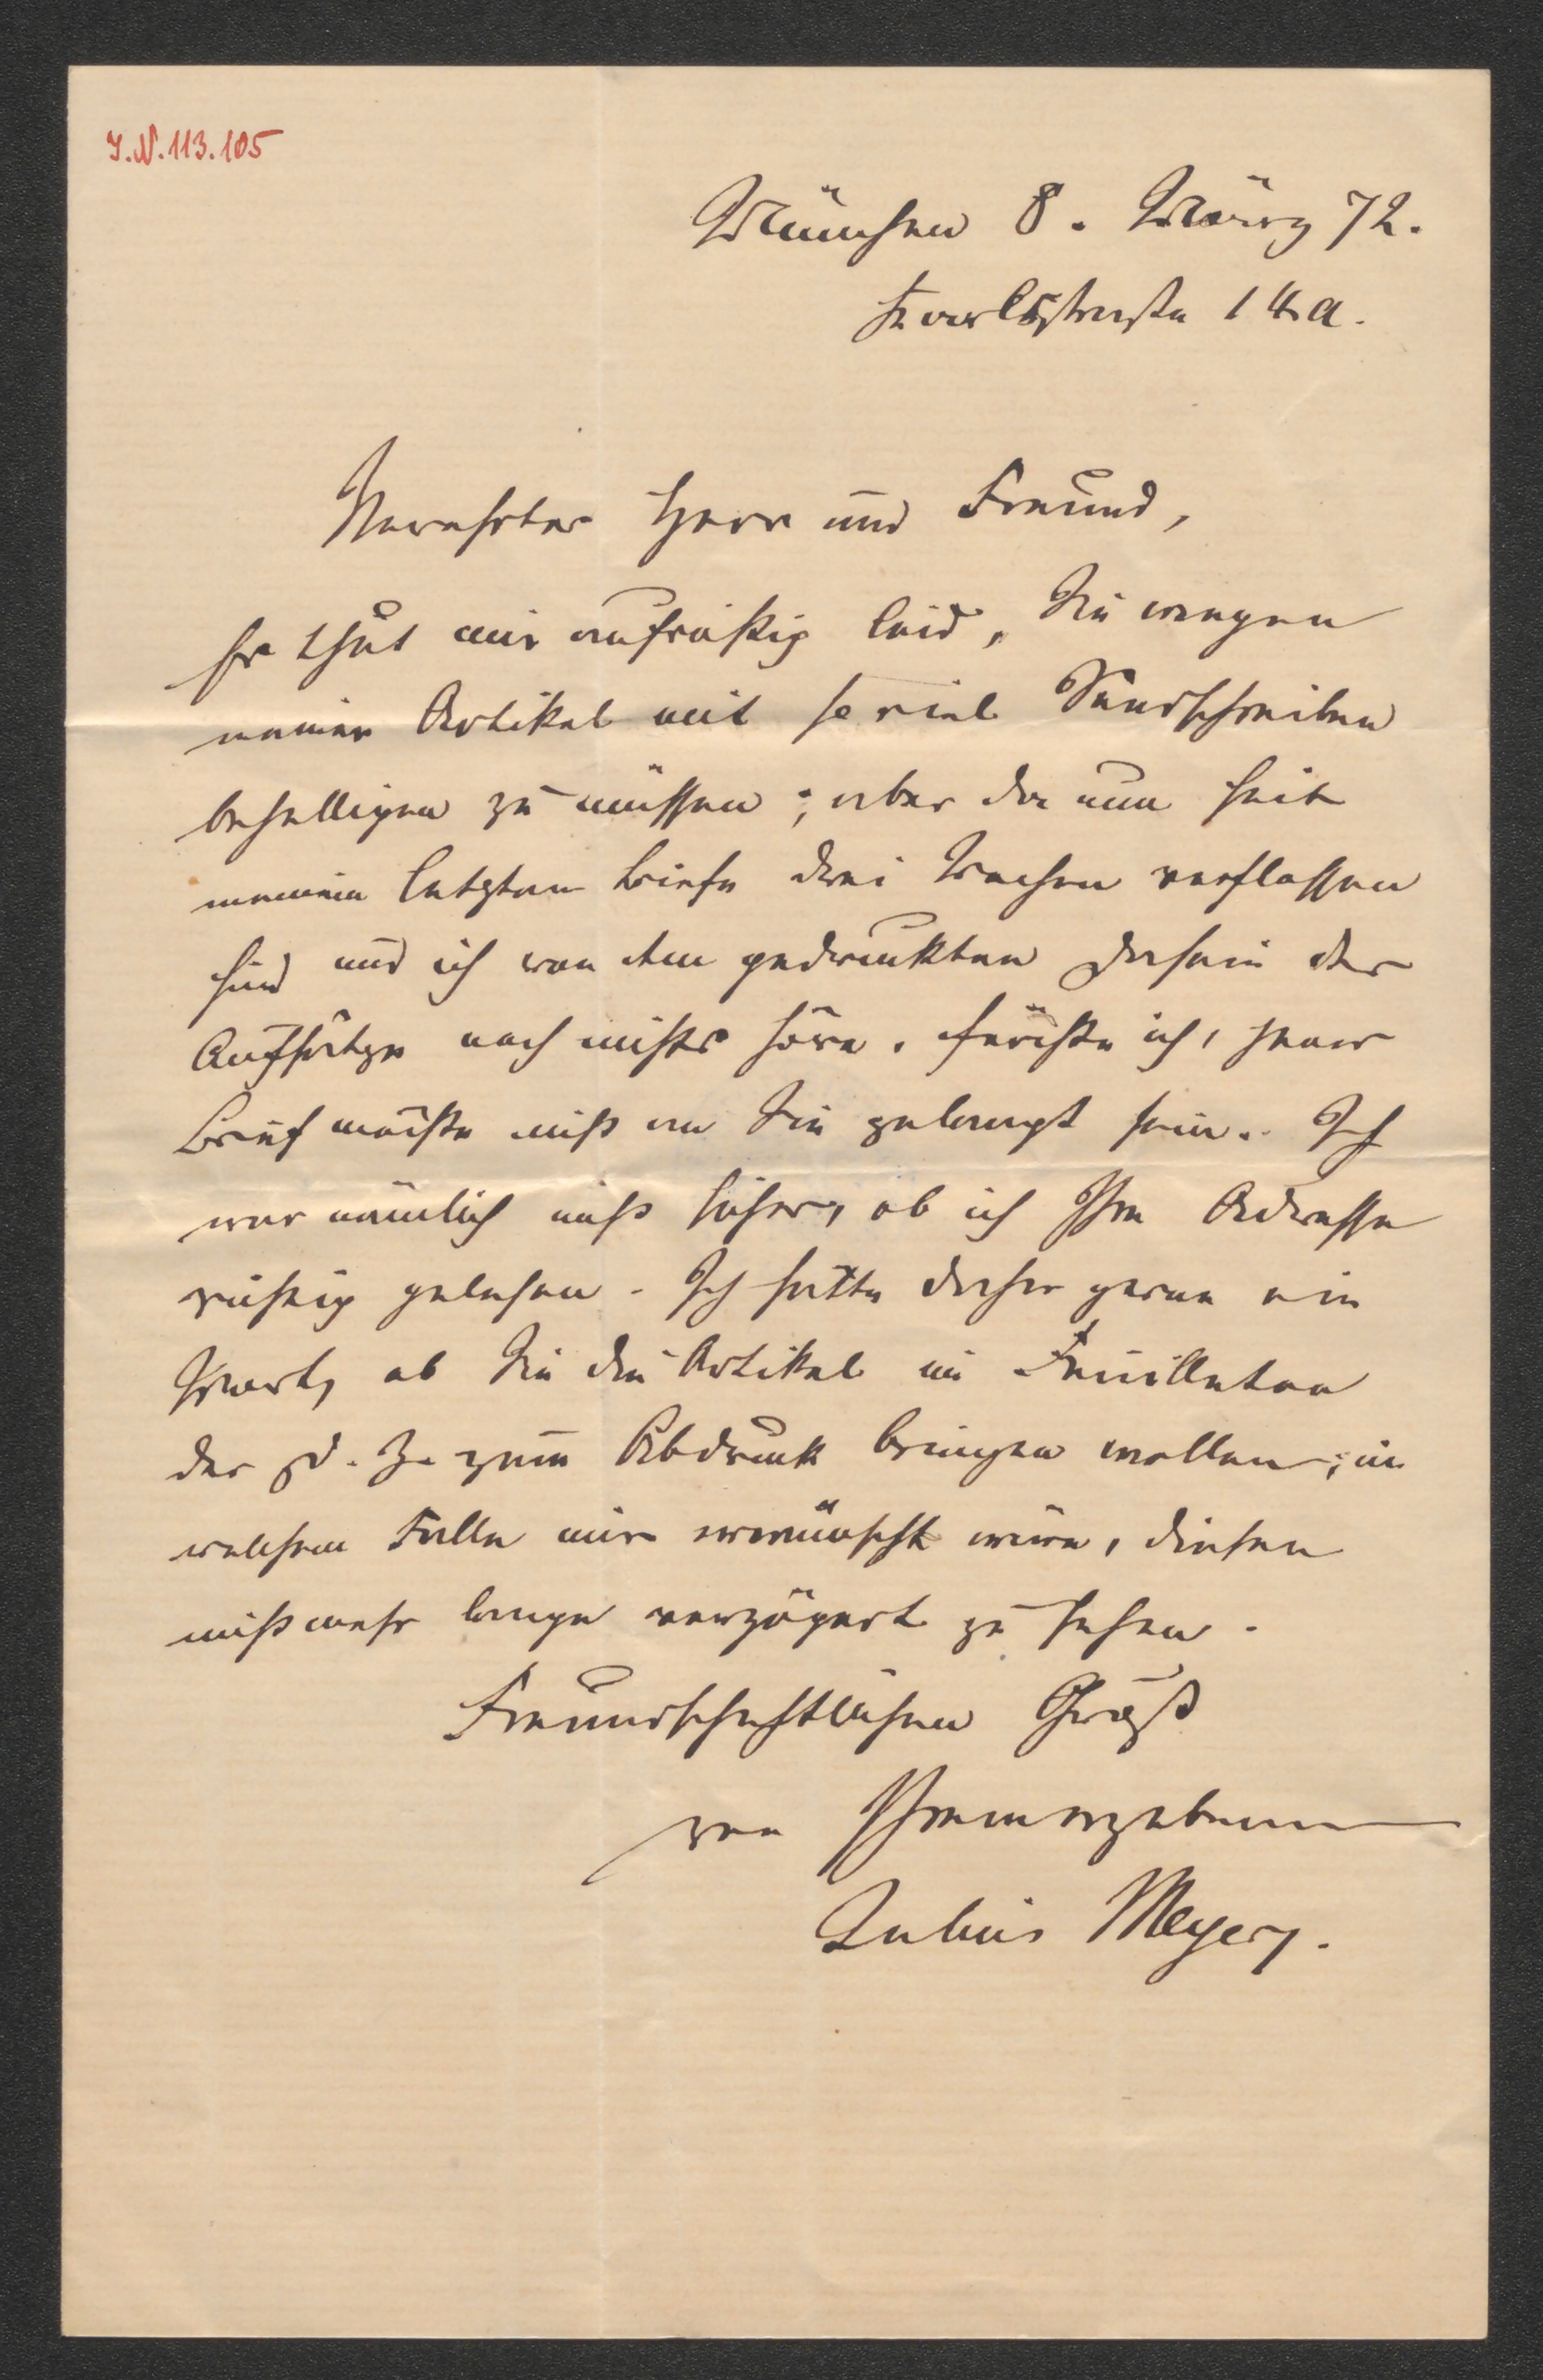 I.N. 113.105
München 8. März 72.
Karlsstraße 14a.
Verehrter Herr und Freund,
Es thut mir aufrichtig leid, Sie wegen
meiner Artikel mit so viel Sendschreiben
behelligen zu müssen; aber da nun seit
meinem letzten Briefe drei Wochen verflossen
sind und ich von dem gedruckten Dasein der
Aufsätze noch nichts höre, fürchte ich, jener
Brief möchte nicht an Sie gelangt sein. Ich
war nämlich nicht sicher, ob ich Ihre Adresse
richtig gelesen. Ich hätte daher gerne ein
Wort, ob Sie die Artikel im Feuilleton
der D. Z. zum Abdruck bringen wollen; in
welchem Falle mir erwünscht wäre, diesen
nicht mehr lange verzögert zu sehen.
Freundschaftlichen Gruß
von Ihrem ergebenen
Julius Meyer.